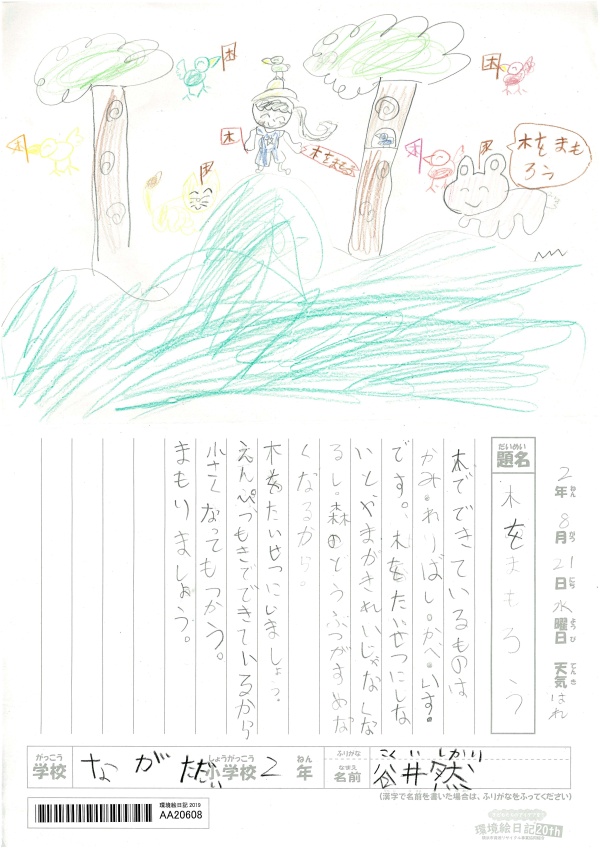 木
木
木
木
木
木をまもろう
木
木をまも
ろう
2年ねん8月がつ21日にち水曜日ようび天気てんきはれ
だいめい
題名
木をまもろう
木でできているものは
かみ・わりばし・かべ・いす。
です。木をたいせつにしな
いとやまがきれいじゃなくな
るし。森のどうぶつがすめな
くなるから。
木をたいせつにしましょう。
えんぴつもきでできているから
小さくなってもつかう。
まもりましょう。
がっこう
学校
ながだい
しょうがっこう
小学校
2
ねん
年
ふりがな
こくい しかり
なまえ
名前
谷井然
(漢字で名前を書いた場合は、ふりがなをふってください)
環境絵日記 2019
AA20608
環境絵日記20th